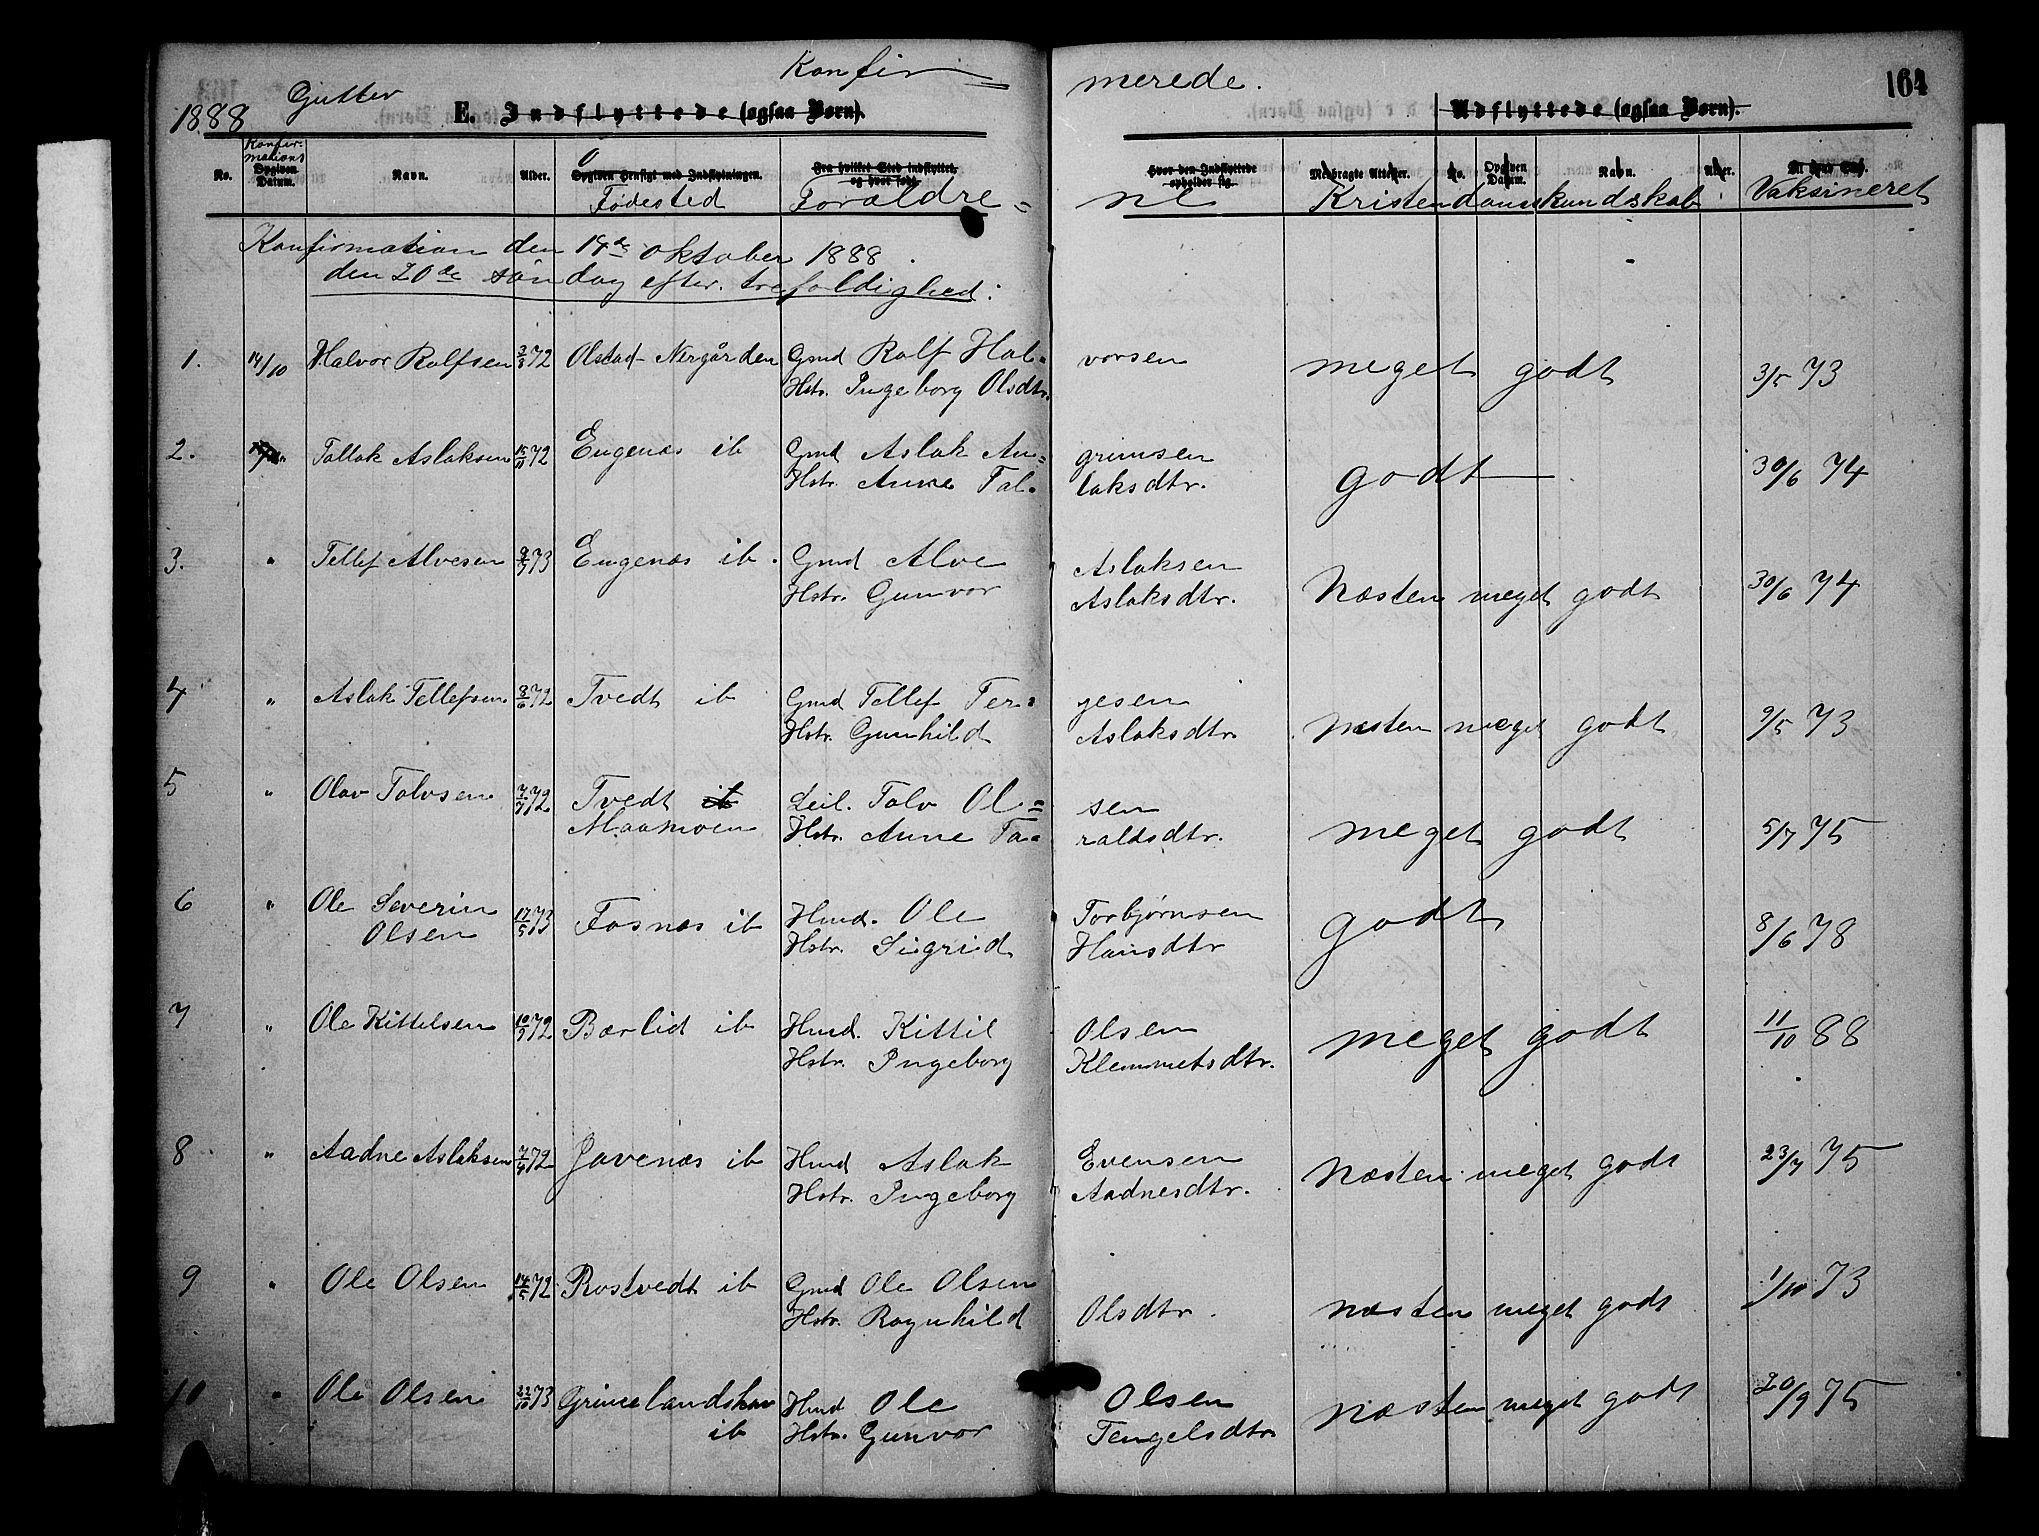 Konfir= merede. 164
1888 Gutter E. Indflyttede (ogsaa Børn). Udflyttede (ogsaa Børn).
No. Konfirmations Opgiven Datum. Navn. Alder. Opgiven Hensigt med Indflytningen. Fødested Fra hvilket Sted indflyttet og hvor født. Forældre= ne Hvor den Indflyttede opholder sig. Medbragte Attester. No. Opgiven Datum. Navn. Alder. Kristendomskundskab Vaksineret
Konfirmation den 14de oktober 1888.
den 20de søndag efter trefoldighed:
1. 14/10 Halvor Rolfsen 3/3 72 Olstad Nergården Gmd Rolf Hal= vorsen meget godt 3/5 73
Hstr. Ingeborg Olsdtr.
2. Tallak Aslaksen 15/11 72 Eugenæs ib Gmd Aslak An= grimsen godt 30/6 74
Hstr. Anne Tal= laksdtr.
3. " Tellef Alvesen 73 Eugenæs ib. Gmd Alve Aslaksen Næsten meget godt 30/6 74
Hstr. Gunvor Aslaksdtr.
4 " Aslak Tellefsen 8/6 72 Tvedt ib Gmd Tellef Ter= jesen næsten meget godt 9/5 73
Hstr. Gunhild Aslaksdtr
5 " Olav Talvsen 7/7 72 Tvedt ib Leil. Talv Ol= sen meget godt 5/7 75
Maamoen Hstr. Anne Ta= raldsdtr.
6 " Ole Severin Olsen 17/5 73 Fosnæs ib Hmd. Ole Torbjørnsen godt 8/6 78
Hstr. Sigrid Hansdtr
7 " Ole Kittelsen 10/9 72 Bærlid ib Hmd. Kittil Olsen meget godt 11/10 88
Hstr. Ingeborg Klemmetsdtr.
8 " Aadne Aslaksen 7/4 72 Javenæs ib Hmd Aslak Evensen Næsten meget godt 23/7 75
Hstr. Ingeborg Aadnesdtr.
9 " Ole Olsen 14/5 72 Rostvedt ib Gmd Ole Olsen næsten meget godt 1/10 73
Hstr. Ragnhild Olsdtr.
10 " Ole Olsen 22/10 73 Grimelandskav Hmd Ole Olsen næsten meget godt 20/9 75
ib Hstr. Gunvor Tengelsdtr